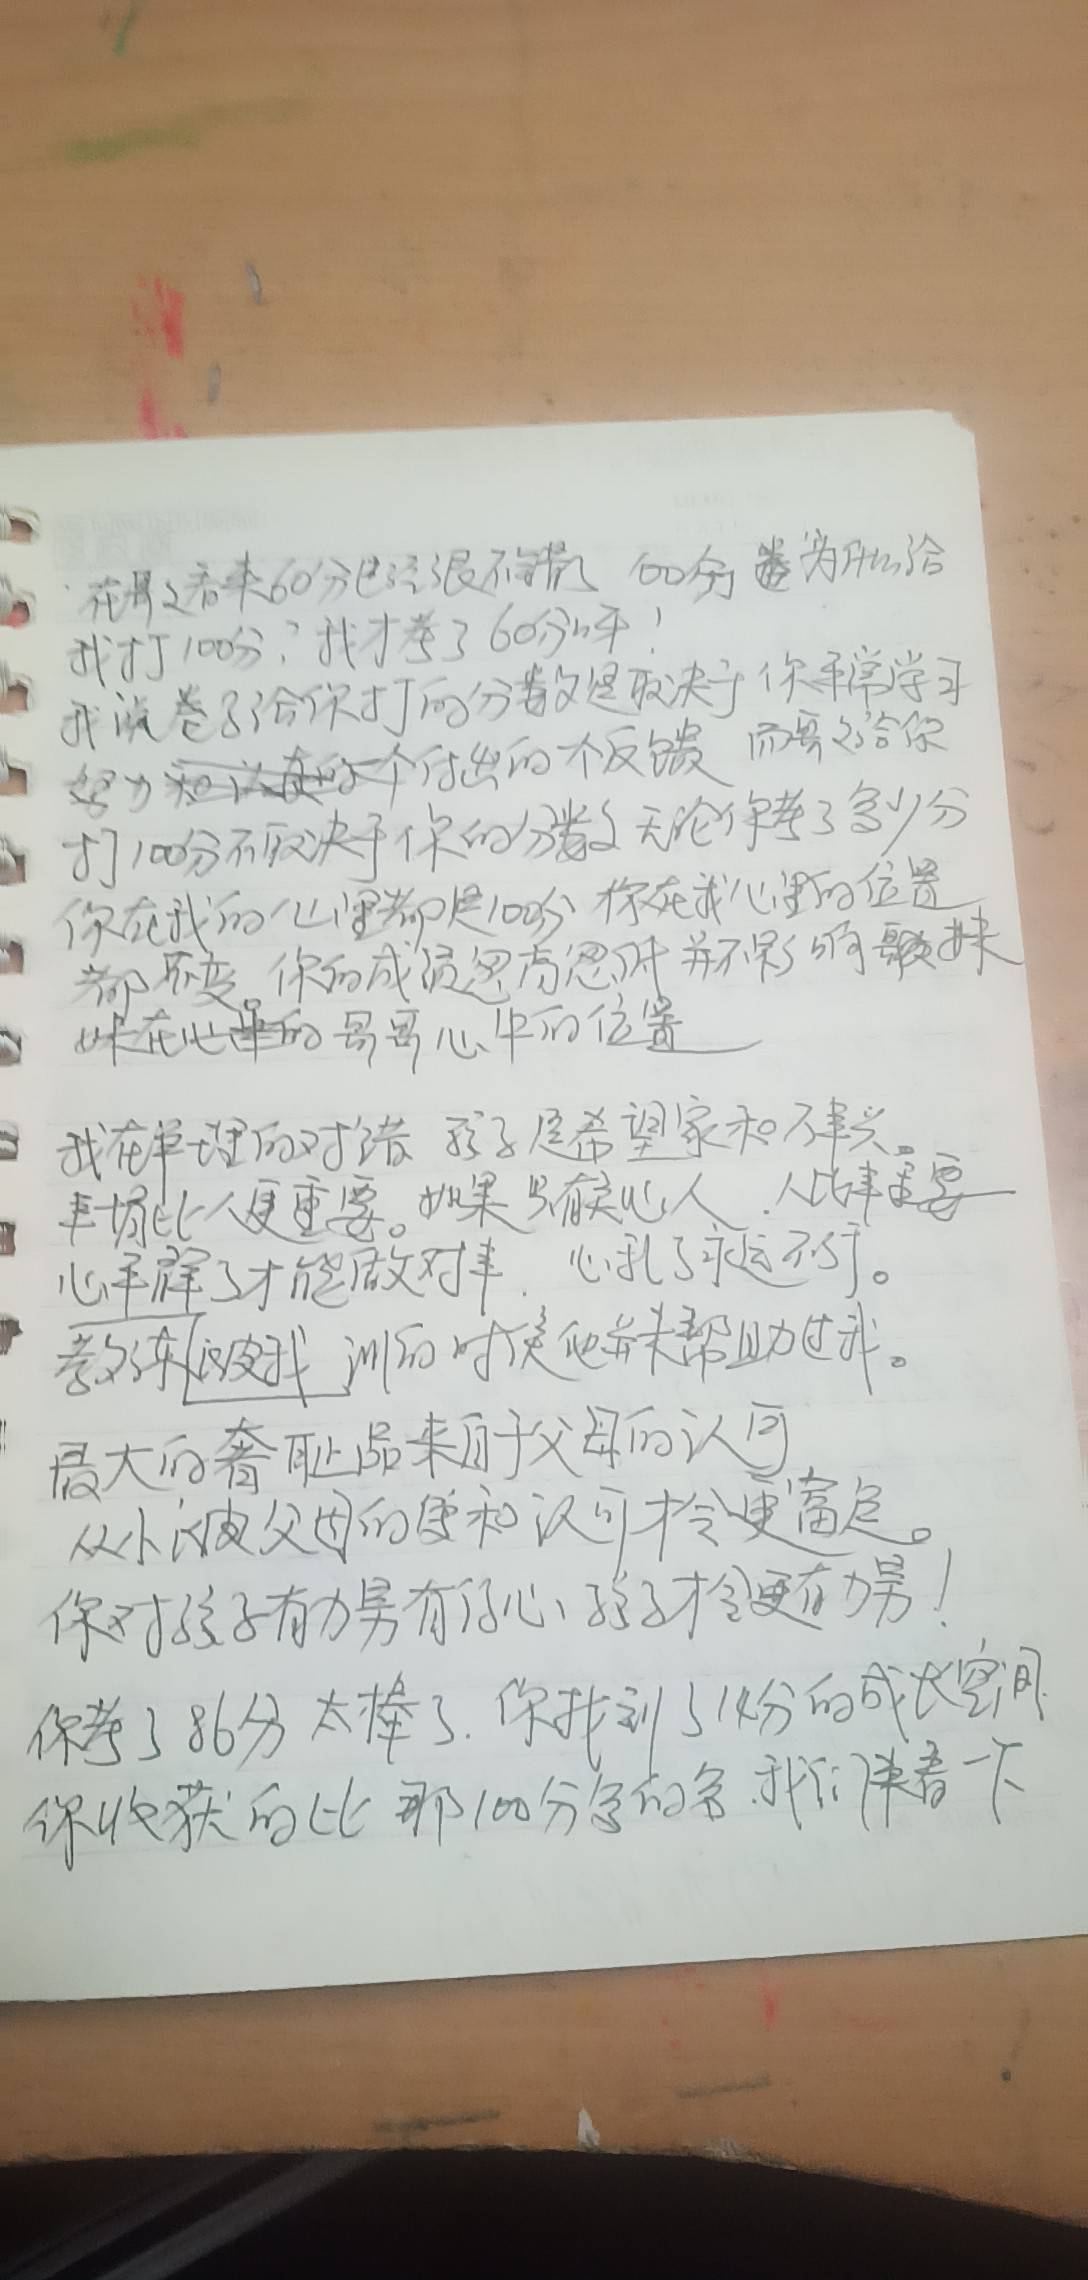 在哥哥看来60分已经很不错了 100分 为什么给
我打100分？我才考了60分呀！
我说卷子给你打的分数是取决于你平常学习
努力 付出的一个反馈 而哥哥给你
打100分不取决于你的分数 无论你考了多少分
你在我的心里都是100分 你在我心里的位置
都不变。你的成绩忽高忽低 并不影响 妹
妹在 哥哥心中的位置
我在争理的对错 孩子是希望家和万事兴。
事情比人更重要。如果只有关心人，人比事重要
心平静了才能做对事，心乱了永远不行。
教练 被我 训的时候他并未帮助过我。
最大的奢耻品来自于父母的认可
从小被父母的爱和认可才会更富足。
你对孩子有力男有信心、孩子才会更有力男！
你考了86分 太棒了，你找到了14分的成长空间
你收获的比那100分多的多，我们来看一下